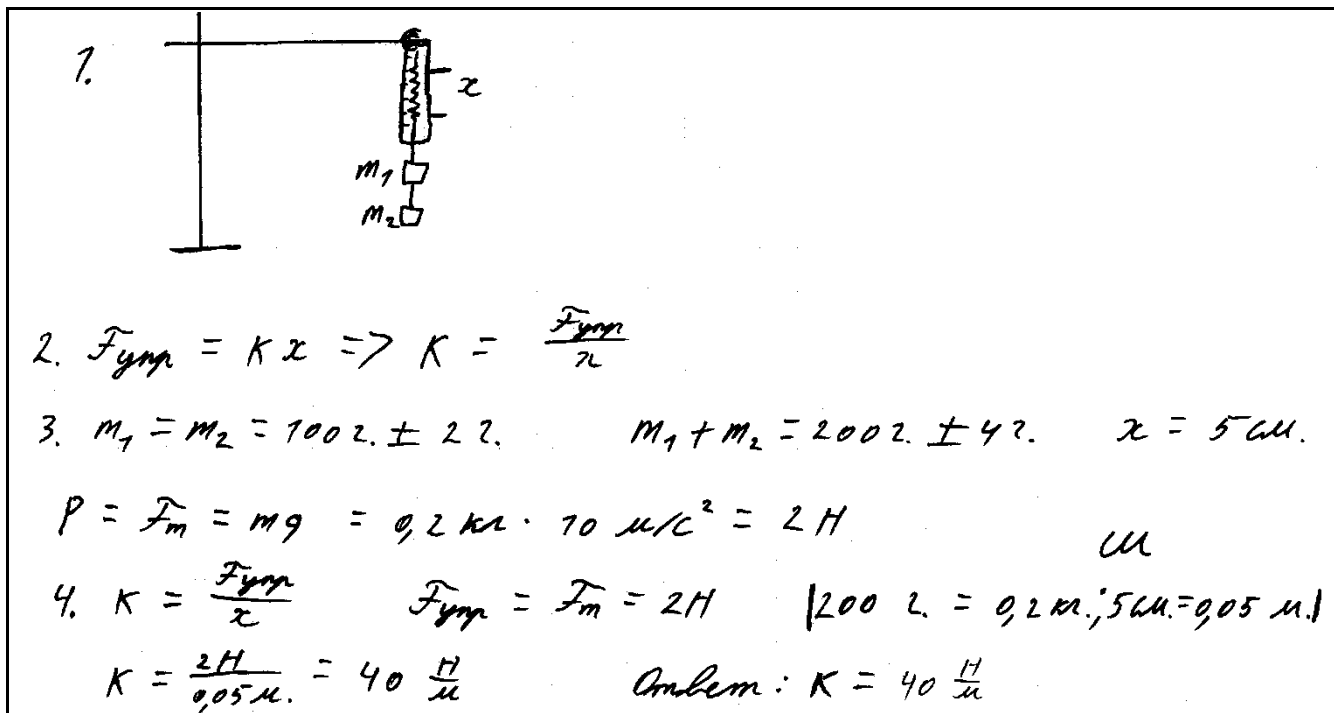 1.
x
m₁
m₂
2. Fупр = Kx => K = Fупр/x
3. m₁ = m₂ = 100г. ± 2г. m₁ + m₂ = 200г. ± 4г. x = 5см.
P = Fт = mg = 0,2 кг · 10 м/с² = 2Н
4. K = Fупр/x Fупр = Fт = 2Н |200 г. = 0,2кг.; 5см.=0,05 м.|
K = 2Н/0,05м. = 40 Н/м Ответ: K = 40 Н/м